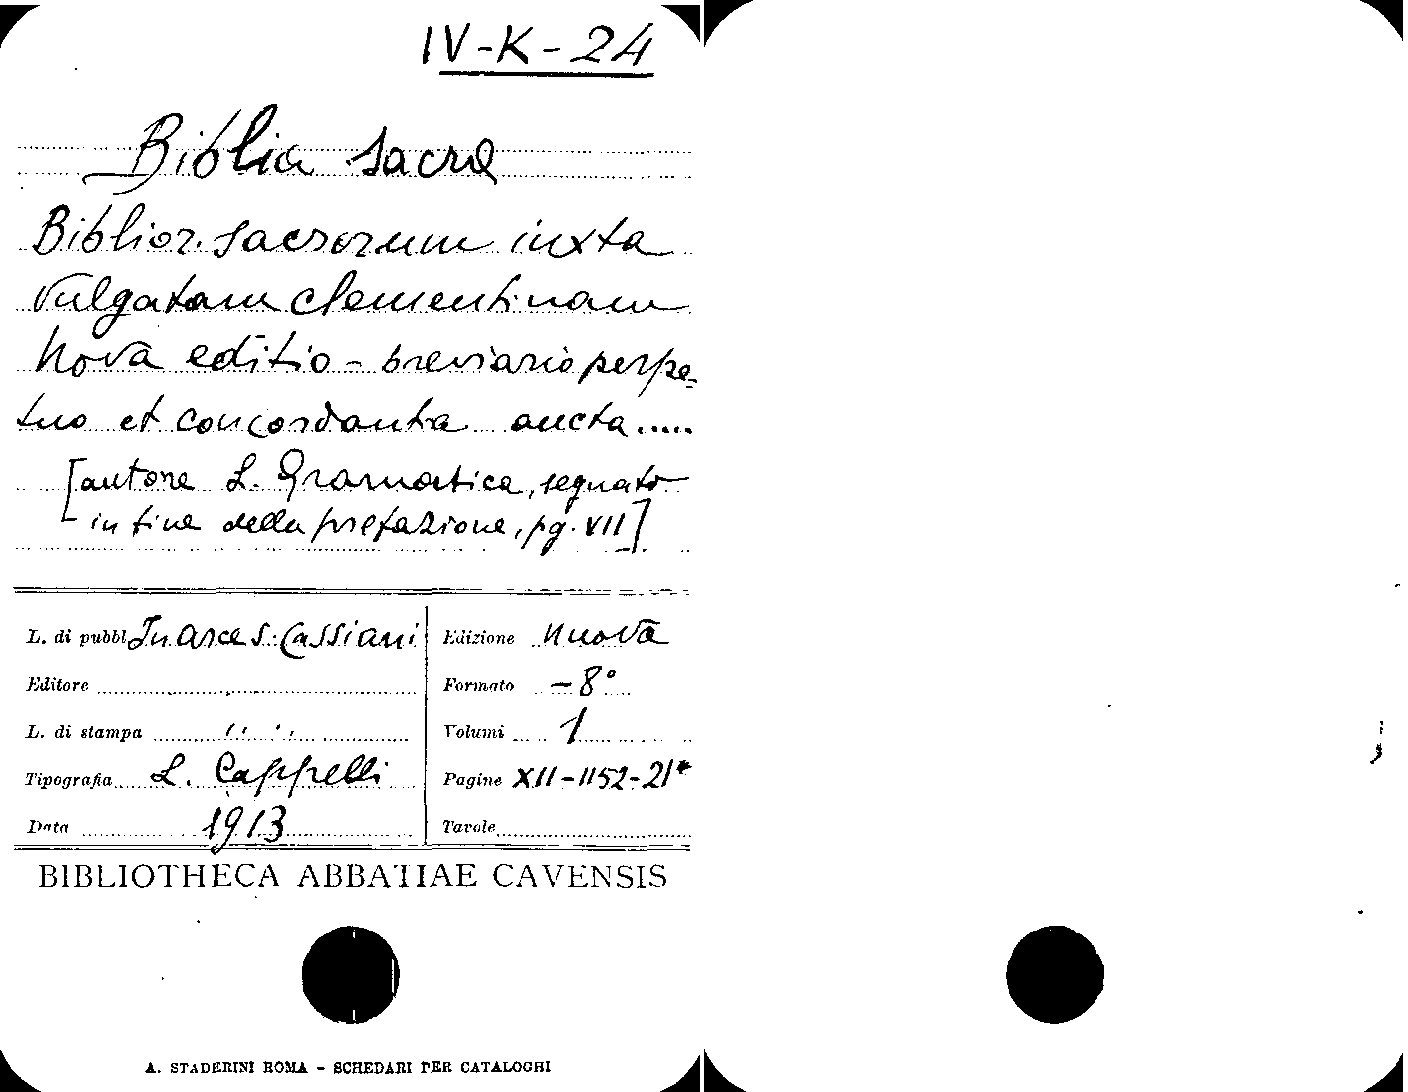 IV-K-24
Biblia sacra
Biblior. sacrorum iuxta
Vulgatam clementinam
nova editio - breviario perpe-
tuo et concordantia aucta.....
[autore L. Gramatica, segnato
in fine della prefazione, pg. VII]
L. di pubbl. In arce S. Cassiani
Edizione nuova
Editore
Formato -8°
L. di stampa " "
Volumi 1
Tipografia L. Cappelli
Pagine XII-1152-21*
Data 1913
Tavole
BIBLIOTHECA ABBATIAE CAVENSIS
A. STADERINI ROMA - SCHEDARI PER CATALOGHI